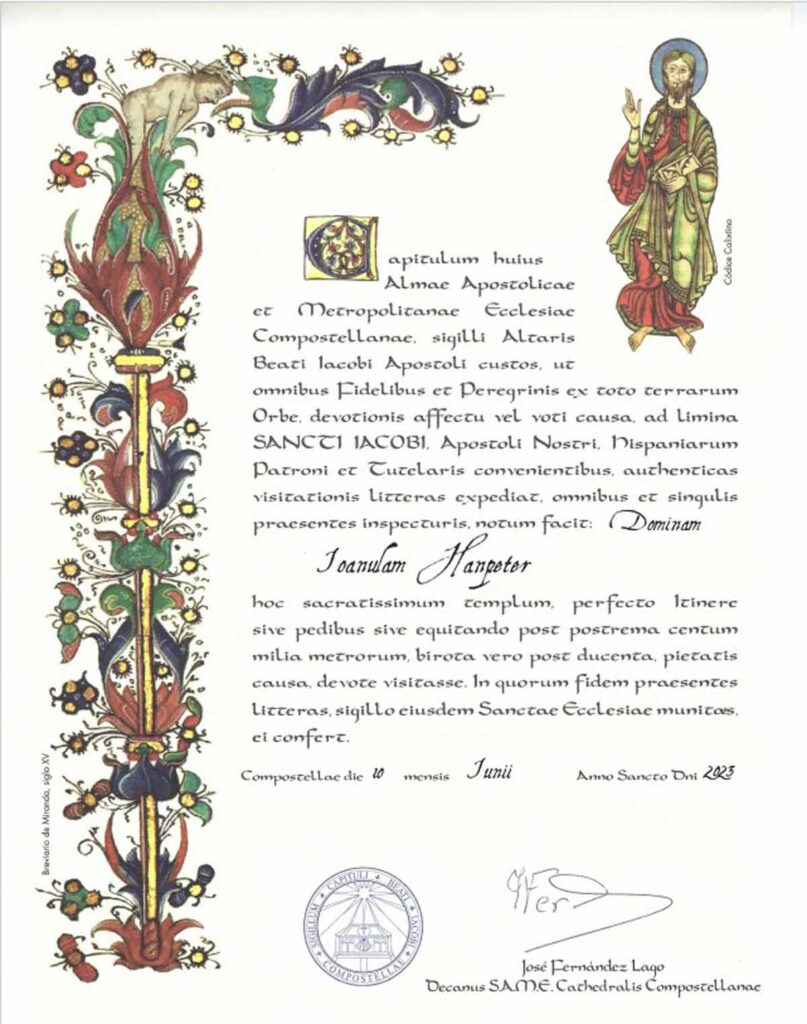 Capitulum huius
Almae Apostolicae
et Metropolitanae Ecclesiae
Compostellanae, sigilli Altaris
Beati Iacobi Apostoli custos, ut
omnibus Fidelibus et Peregrinis ex toto terrarum
Orbe, devotionis affectu vel voti causa, ad limina
SANCTI IACOBI, Apostoli Nostri, Hispaniarum
Patroni et Tutelaris convenientibus, authenticas
visitationis litteras expediat, omnibus et singulis
praesentes inspecturis, notum facit: Dominam
Ioanulam Hanpeter
hoc sacratissimum templum, perfecto Itinere
sive pedibus sive equitando post postrema centum
milia metrorum, birota vero post ducenta, pietatis
causa, devote visitasse. In quorum fidem praesentes
litteras, sigillo eiusdem Sanctae Ecclesiae munitas,
ei confert.
Compostellae die 10 mensis Iunii Anno Sancto Dni 2023
Códice Calixtino
Breviario de Miranda, siglo XV
SIGILLUM CAPITULI BEATI IACOBI COMPOSTELLAE
José Fernández Lago
Decanus S.A.M.E. Cathedralis Compostellanae